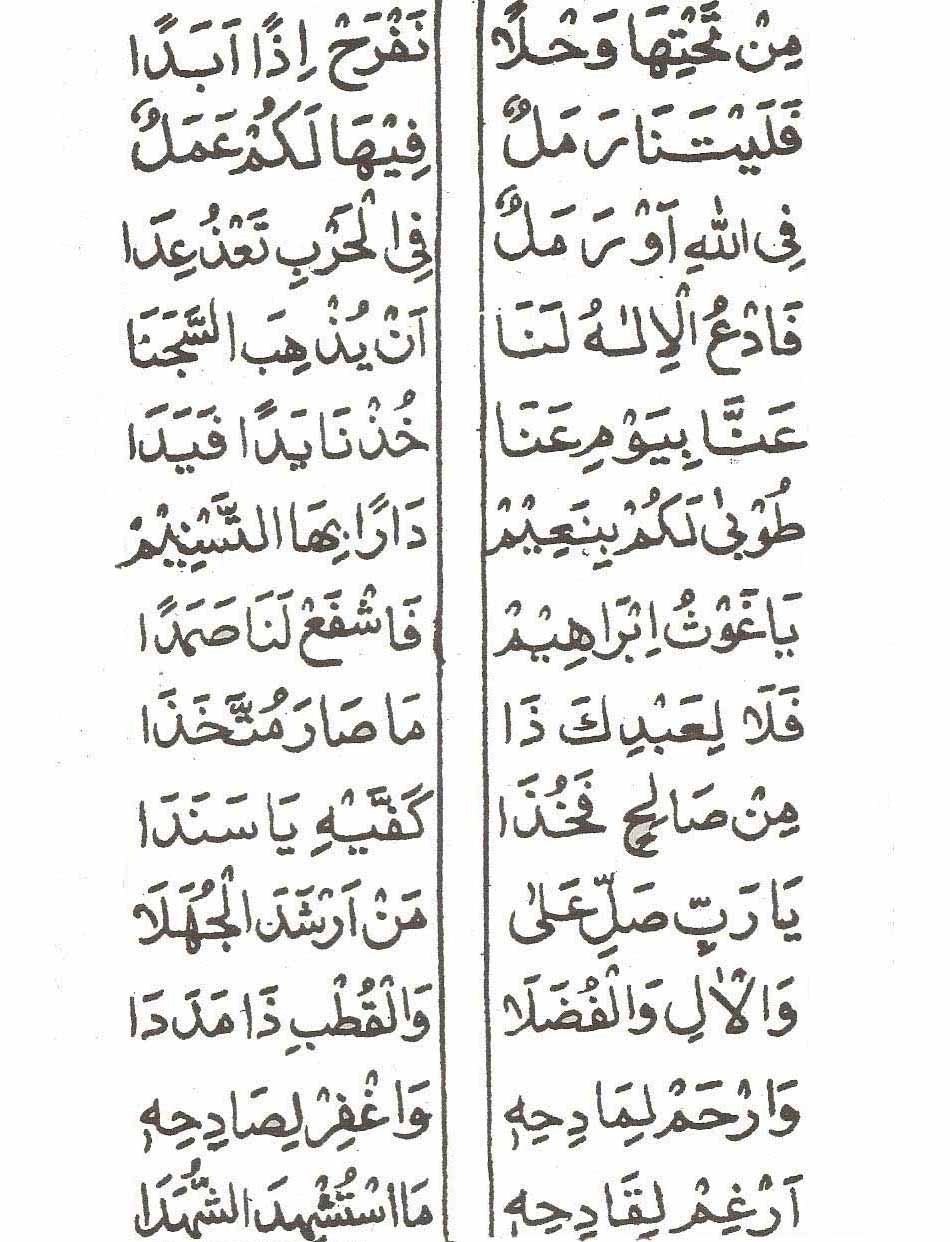 مِنْ تَحْتِهَا وَحْلًا نَفْرَحْ اِذًا اَبَدًا
فَلَيْتَنَا رَمَلٌ فِيْهَا لَكُمْ عَمَلٌ
فِى اللهِ اَوْ رَمَلٌ فِى الْحَرْبِ تَعْدُ عِدَا
فَادْعُ الْاِلٰهُ لَنَا اَنْ يُذْهِبَ السَّجَنَا
عَنَّا بِيَوْمِ عَنَا خُذْنَا يَدًا فَيَدَا
طُوْبٰى لَكُمْ بِنَعِيْمْ دَارًا بِهَا التَّسْنِيْمْ
يَا غَوْثُ اِبْرَاهِيْمْ فَاشْفَعْ لَنَا صَمَدًا
فَلَا لِعَبْدِكَ ذَا مَا صَارَ مُتَّخَذَا
مِنْ صَالِحٍ فَخُذَا كَفَّيْهِ يَا سَنَدَا
يَا رَبِّ صَلِّ عَلٰى مَنْ اَرْشَدَ الْجُهَلَا
وَالْاٰلِ وَالْفُضَلَا وَالْقُطْبِ ذَا مَدَدَا
وَارْحَمْ لِمَادِحِهٖ وَاغْفِرْ لِصَادِحِهٖ
اَرْغِمْ لِقَادِحِهٖ مَا اسْتُشْهِدَ الشُّهَدَا